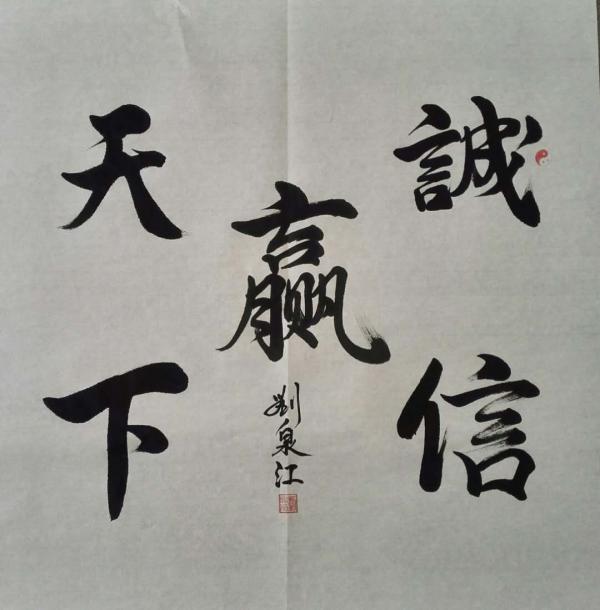 誠信
赢
天下
刘泉江